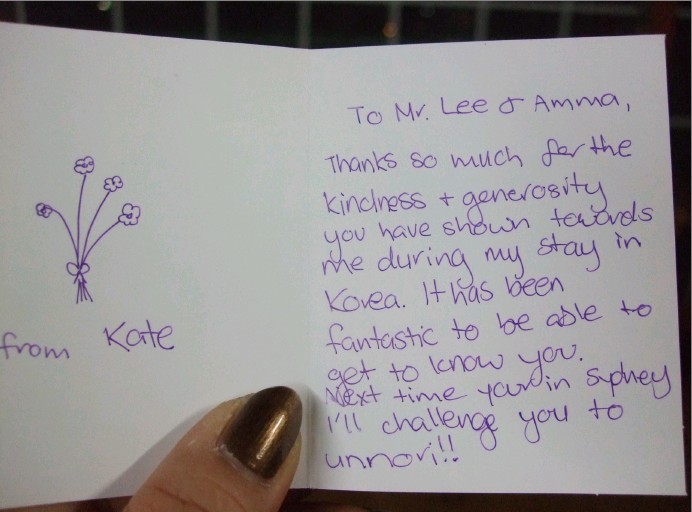 To Mr. Lee & Amma,
Thanks so much for the
kindness + generosity
you have shown towards
me during my stay in
Korea. It has been
fantastic to be able to
get to know you.
Next time your in Sydney
I'll challenge you to
unnori!!
from Kate